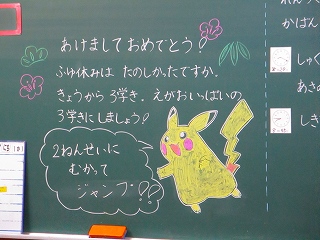 あけましておめでとう!
ふゆ休みは たのしかったですか。
きょうから 3学き。えがおいっぱいの
3学きにしましょう!
2ねんせいに
むかって
ジャンプ!!
しゅく
かばん
あさの
しき